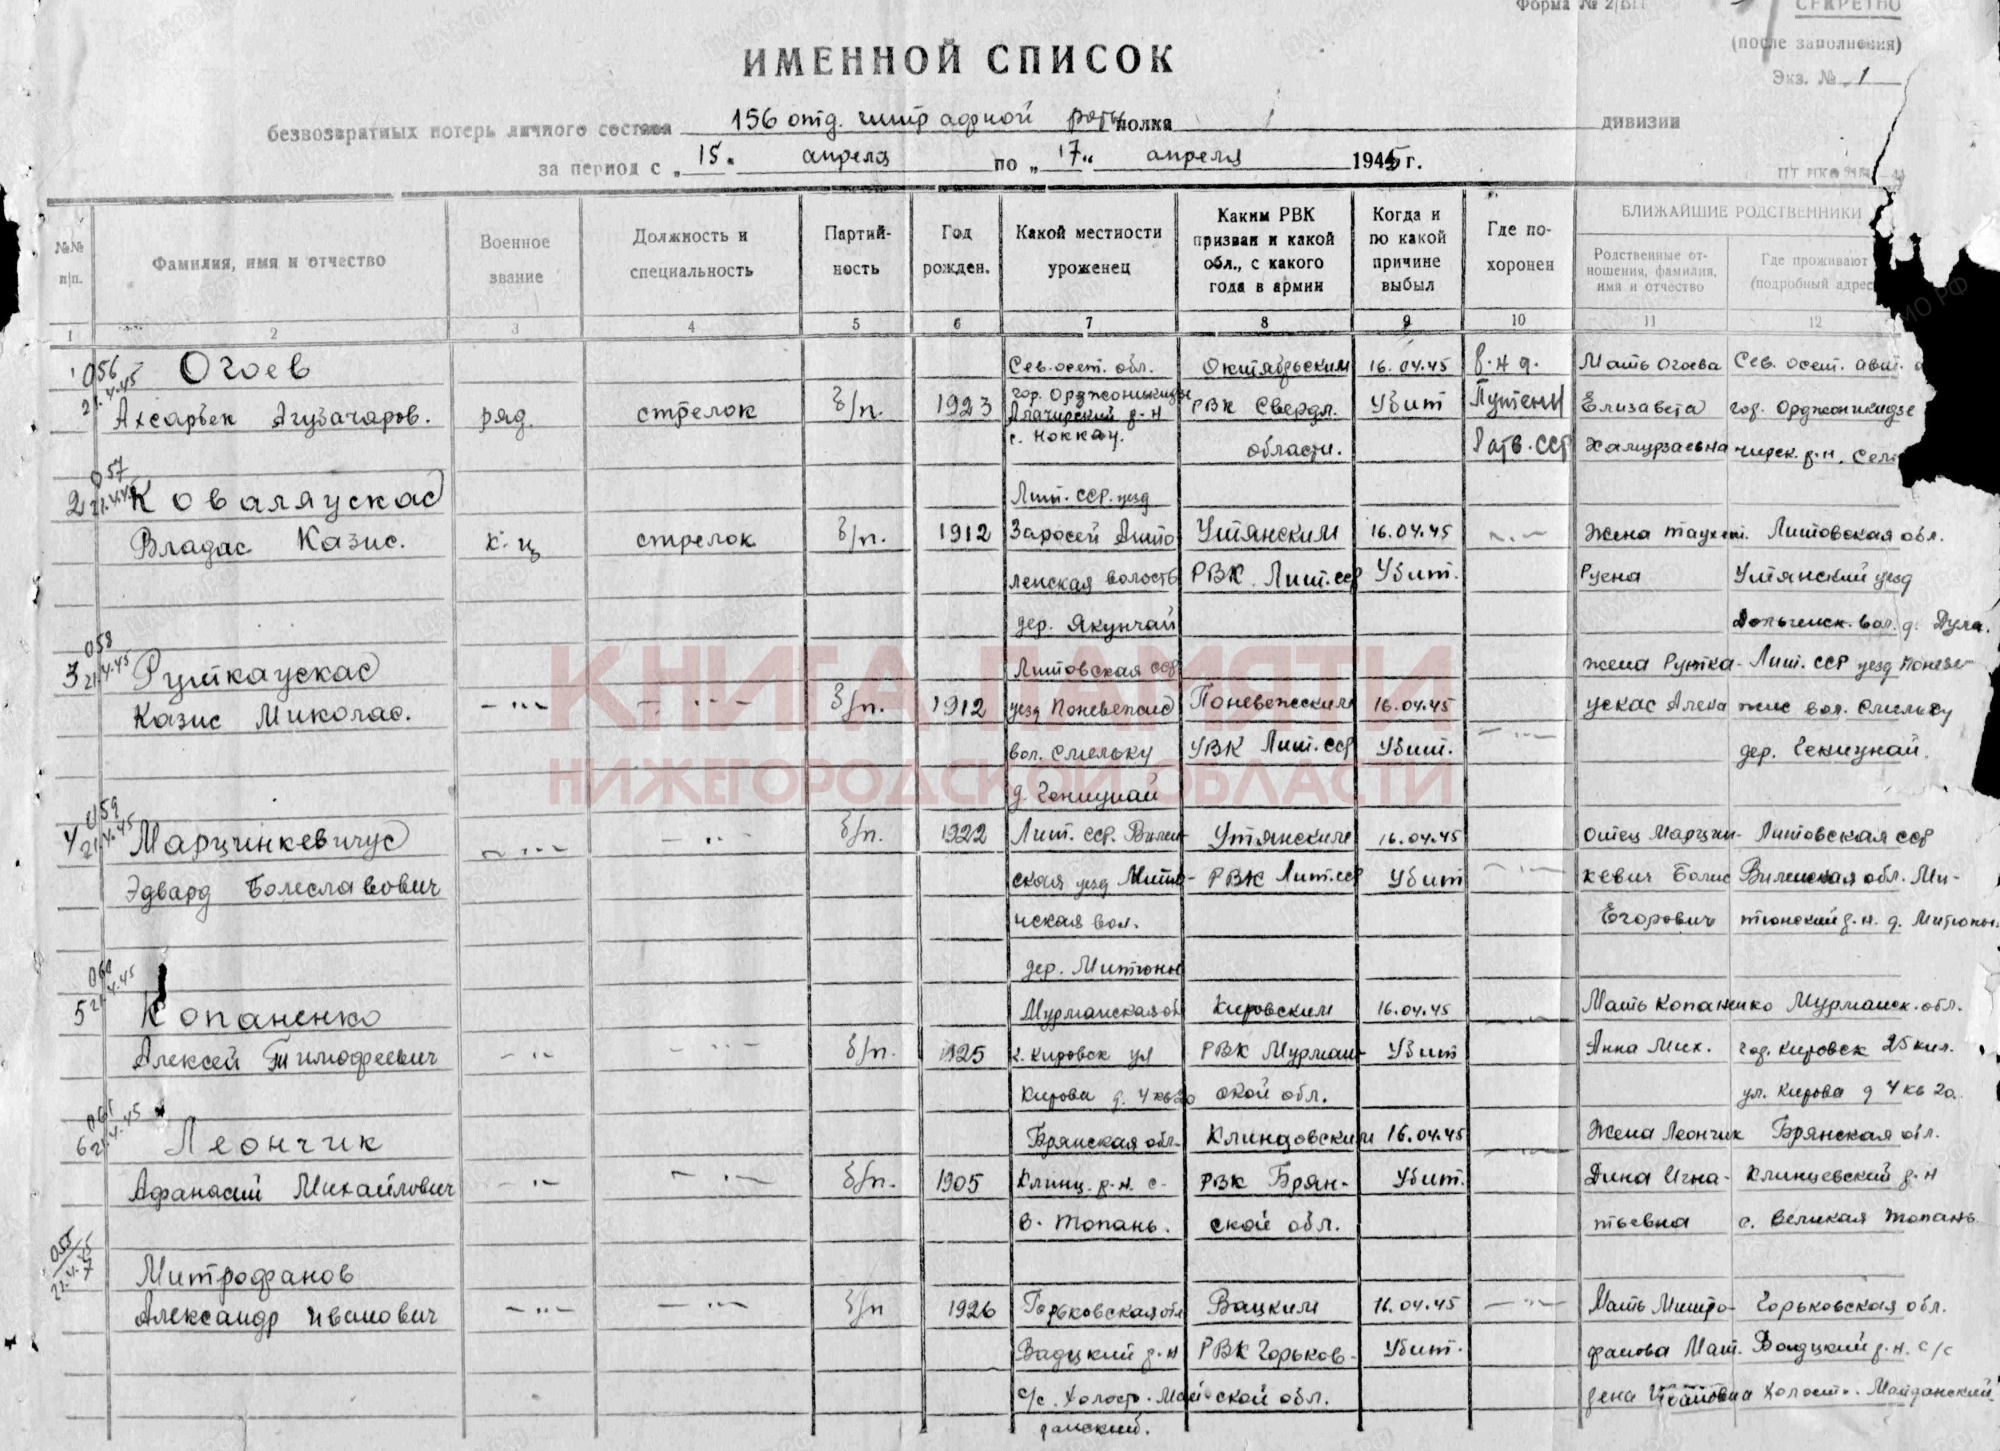 Форма № 2/БП
СЕКРЕТНО
(после заполнения)
Экз. № 1
ИМЕННОЙ СПИСОК
безвозвратных потерь личного состава 156 отд. штрафной роты полка дивизии
за период с „15" апреля по „17" апреля 1945 г.
№№ п/п.
Фамилия, имя и отчество
Военное звание
Должность и специальность
Партийность
Год рожден.
Какой местности уроженец
Каким РВК призван и какой обл., с какого года в армии
Когда и по какой причине выбыл
Где похоронен
БЛИЖАЙШИЕ РОДСТВЕННИКИ
Родственные отношения, фамилия, имя и отчество
Где проживают (подробный адрес
1 2 3 4 5 6 7 8 9 10 11 12
1 056 Огоев Сев. осет. обл. Октябрьским 16.04.45 в. н д. Мать Огоева Сев. осет. авт.
21.4.45 Ахсарбек Агубачаров. ряд. стрелок б/п. 1923 гор. Орджоникидзе Алагирский р-н РВК Свердл. Убит Путени Елизавета гор. Орджоникидзе
с. Ноккау. области. Латв. ССР Хамурзаевна чирск. р.н. Сел
2 057 21.4.45 Коваляускас Лит. ССР. уезд
Владас Казис. к-ц стрелок б/п. 1912 Заросей Анто Утянским 16.04.45 —„— Жена Литовская обл.
лепская волость РВК Лит. сср Убит. Руена Утянский уезд
дер. Якунчай вол. д. Дула.
3 058 21.4.45 Руткаускас Литовская сср жена Рутка- Лит. ССР уезд Поневе-
Казис Миколас. —„— —„— б/п. 1912 уезд Поневежис Поневежским 16.04.45 ускас Алека жис вол. Смельку
вол. Смельку УВК Лит. сср Убит. —„— дер. Гениунай.
д. Гениунай
4 059 21.4.45 Марцинкевичус —„— —„— б/п. 1922 Лит. сср. Вилен- Утянским 16.04.45 отец Марцин- Литовская сср
Эдвард Болеславович ская уезд Митю- РВК Лит. сср Убит —„— кевич Болис Виленская обл. Ми-
нская вол. Егорович тюнский р.н. д. Митюны.
дер. Митюны
5 060 21.4.45 Копаненко Мурманская об Кировским 16.04.45 Мать Копаненко Мурманск. обл.
Алексей Тимофеевич —„— —„— б/п. 1925 г. Кировск ул РВК Мурман- Убит Анна Мих. гор. Кировск 25 кил.
Кирова д. 4 кв 20 ской обл. ул. Кирова д 4 кв 20.
6 061 21.4.45 Леончик Брянская обл- Клинцовским 16.04.45 Жена Леончик Брянская обл.
Афанасий Михайлович —„— —„— б/п. 1905 Клинц. р.н. с- РВК Брян- Убит. Дина Игна- Клинцевский р-н
В. Топань. ской обл. тьевна с. Великая Топань
055 21.4.45 7 Митрофанов
Александр Иванович —„— —„— б/п 1926 Горьковская обл Вацким 16.04.45 —„— Мать Митро- Горьковская обл.
Вадцкий р-н РВК Горьков- Убит. фанова Мат. Вадцкий р.н. с/с
с/с. Холост. Май- ской обл. рена Ивановна Холост. Майданский
данский.
КНИГА ПАМЯТИ
НИЖЕГОРОДСКОЙ ОБЛАСТИ